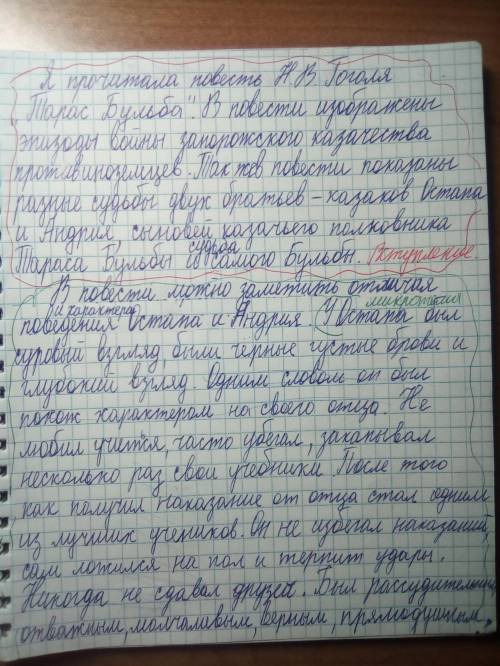 Я прочитала повесть Н.В. Гоголя
"Тарас Бульба". В повести изображены
эпизоды войны запорожского казачества
противиноземцев. Также в повести показаны
разные судьбы двух братьев - казаков Остапа
и Андрия, сыновей казачьего полковника
судьба
Тараса Бульбы и самого Бульбы. Вступление.
В повести можно заметить отличия
и характера микротемия
поведения Остапа и Андрия. У Остапа был
суровый взгляд, были чёрные густые брови и
глубокий взгляд. Одним словом он был
похож характером на своего отца. Не
любил учится, часто убегал, закапывал
несколько раз свои учебники. После того
как получил наказание от отца стал одним
из лучших учеников. Он не избегал наказаний,
сам ложился на пол и терпит удары.
Никогда не сдавал друзей. Был рассудительным,
отважным, молчаливым, верным, прямодушным.